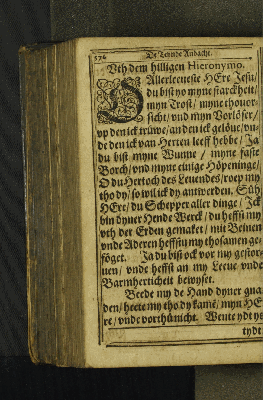 576 De Leeuwde Andacht.
Vth dem hilligen Hieronymo.
O Allerleeueste HEre Jesu/
du bist yo myne starckheit/
myn Trost / myne thouor-
sicht/ vnd myn Vorlöser/
vp den ick trüwe/ an den ick gelöue/ vn-
de den ick van Herten leeff hebbe / Ja
du bist myne Wunne / myne faste
Borch/ vnd myne einige Höpeninge/
O du Hertoch des Leuendes/ roep my
tho dy/ so wil ick dy antwerden. Süh
HEre/ du Schepper aller dinge / Jck
bin dyner Hende Werck/ du heffst my
vth der Erden gemaket/ mit Beinen
vnde Aderen heffstu my thosamen ge-
föget. Ja du bist ock vor my gestor-
uen/ vnde heffst an my Leeue vnde
Barmherticheit bewyset.
Beede my de Hand dyner gna
den/ heete my tho dy kamē/ myn HE
re/ vnde vorthü nicht. Wente ydt ys
tydt